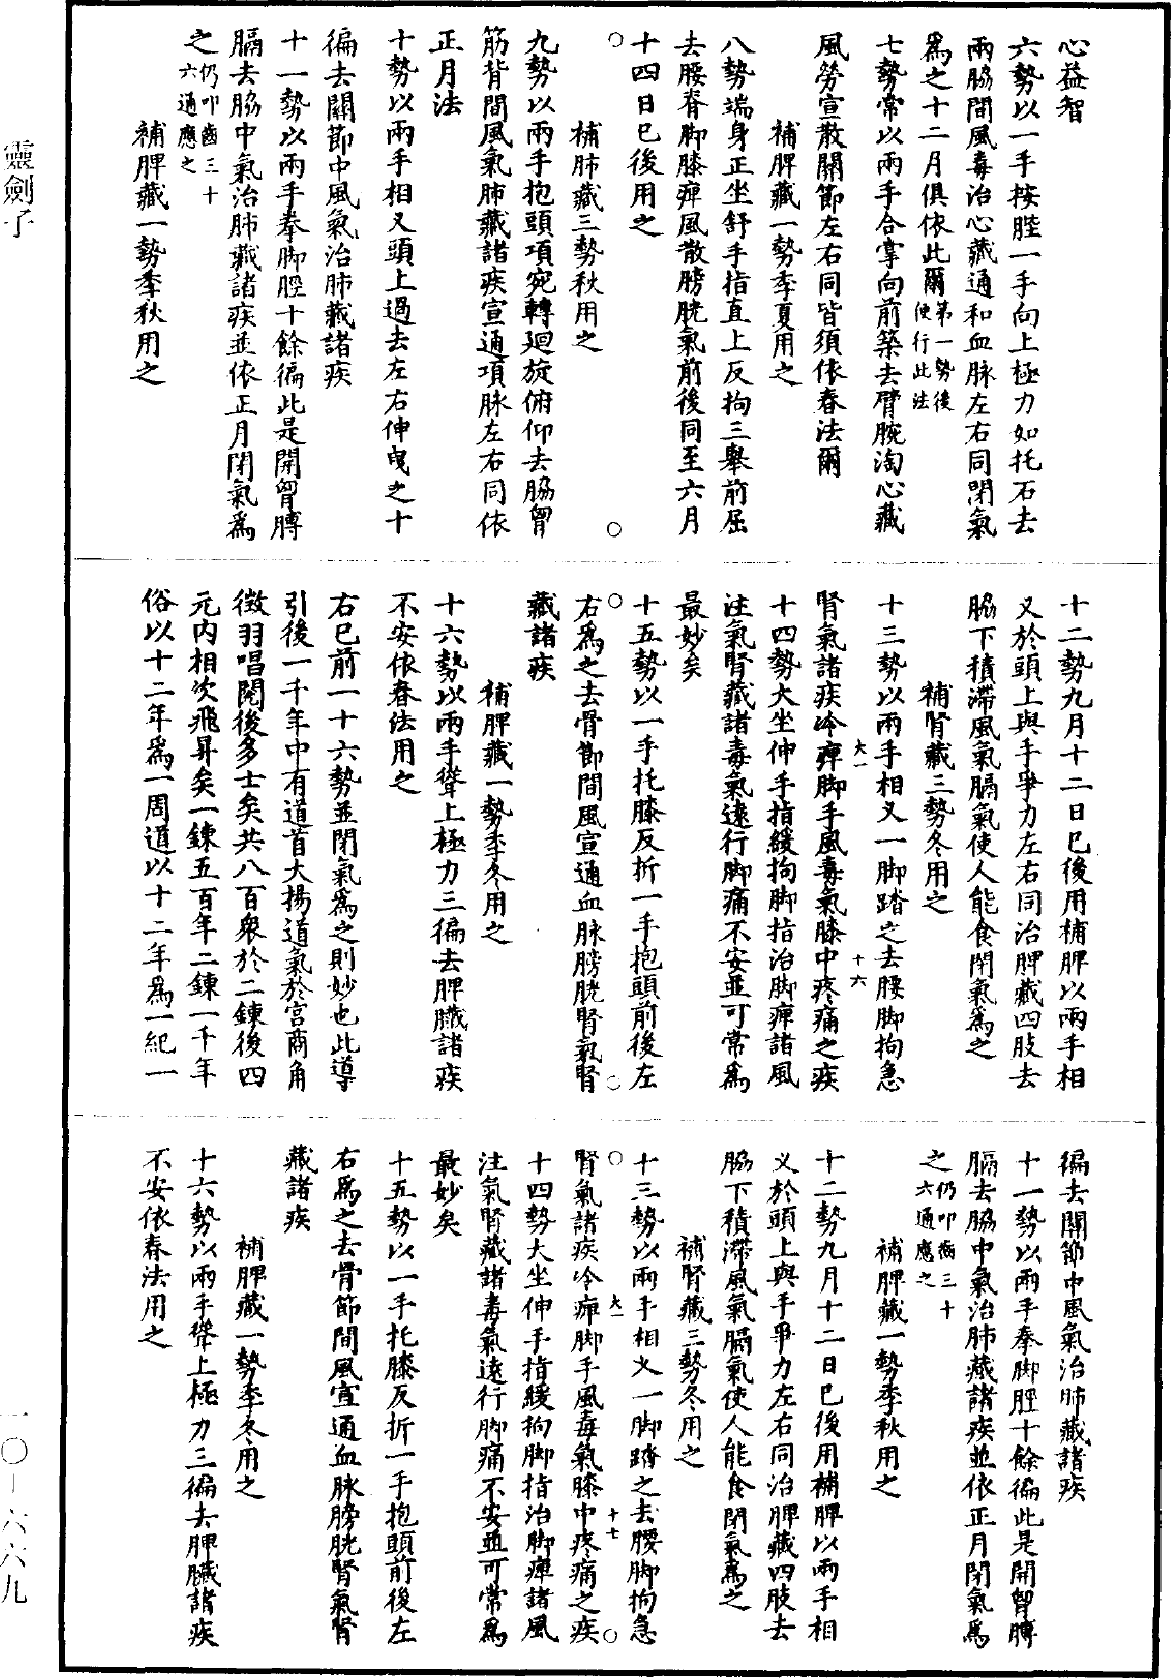 心益智
六勢以一手按䏶一手向上極力如托石去
兩脇間風毒治心藏通和血脉左右同閉氣
爲之十二月俱依此爾第一勢後便行此法
七勢常以兩手合掌向前築去臂腕淘心藏
風勞宣散關節左右同皆須依春法爾
補脾藏一勢季夏用之
八勢端身正坐舒手指直上反拘三舉前屈
去腰脊脚膝痺風散膀胱氣前後同至六月
十四日已後用之
補肺藏三勢秋用之
九勢以兩手抱頭項宛轉廻旋俯仰去脇胷
筋背間風氣肺藏諸疾宣通項脉左右同依
正月法
十勢以兩手相叉頭上過去左右伸曳之十
徧去關節中風氣治肺藏諸疾
十一勢以兩手拳脚脛十餘徧此是開胷膊
膈去脇中氣治肺藏諸疾並依正月閉氣爲
之仍叩齒三十六通應之
補脾藏一勢季秋用之
十二勢九月十二日已後用補脾以兩手相
叉於頭上與手爭力左右同治脾藏四肢去
脇下積滯風氣膈氣使人能食閉氣爲之
補腎藏三勢冬用之
十三勢以兩手相叉一脚踏之去腰脚拘急
腎氣諸疾冷痺脚手風毒氣膝中疼痛之疾
大一
十六
十四勢大坐伸手指緩拘脚指治脚痺諸風
注氣腎藏諸毒氣遠行脚痛不安並可常爲
最妙矣
十五勢以一手托膝反折一手抱頭前後左
右爲之去骨節間風宣通血脉膀胱腎氣腎
藏諸疾
補脾藏一勢季冬用之
十六勢以兩手聳上極力三徧去脾臟諸疾
不安依春法用之
右已前一十六勢並閉氣爲之則妙也此導
引後一千年中有道首大揚道氣於宮商角
徵羽唱閱後多士矣共八百衆於二鍊後四
元內相次飛昇矣一鍊五百年二鍊一千年
俗以十二年爲一周道以十二年爲一紀一
徧去關節中風氣治肺藏諸疾
十一勢以兩手拳脚脛十餘徧此是開胷膊
膈去脇中氣治肺藏諸疾並依正月閉氣爲
之仍叩齒三十六通應之
補脾藏一勢季秋用之
十二勢九月十二日已後用補脾以兩手相
叉於頭上與手爭力左右同治脾藏四肢去
脇下積滯風氣膈氣使人能食閉氣爲之
補腎藏三勢冬用之
十三勢以兩手相叉一脚踏之去腰脚拘急
腎氣諸疾冷痺脚手風毒氣膝中疼痛之疾
大一
十七
十四勢大坐伸手指緩拘脚指治脚痺諸風
注氣腎藏諸毒氣遠行脚痛不安並可常爲
最妙矣
十五勢以一手托膝反折一手抱頭前後左
右爲之去骨節間風宣通血脉膀胱腎氣腎
藏諸疾
補脾藏一勢季冬用之
十六勢以兩手聳上極力三徧去脾臟諸疾
不安依春法用之
靈劍子
一〇-六六九